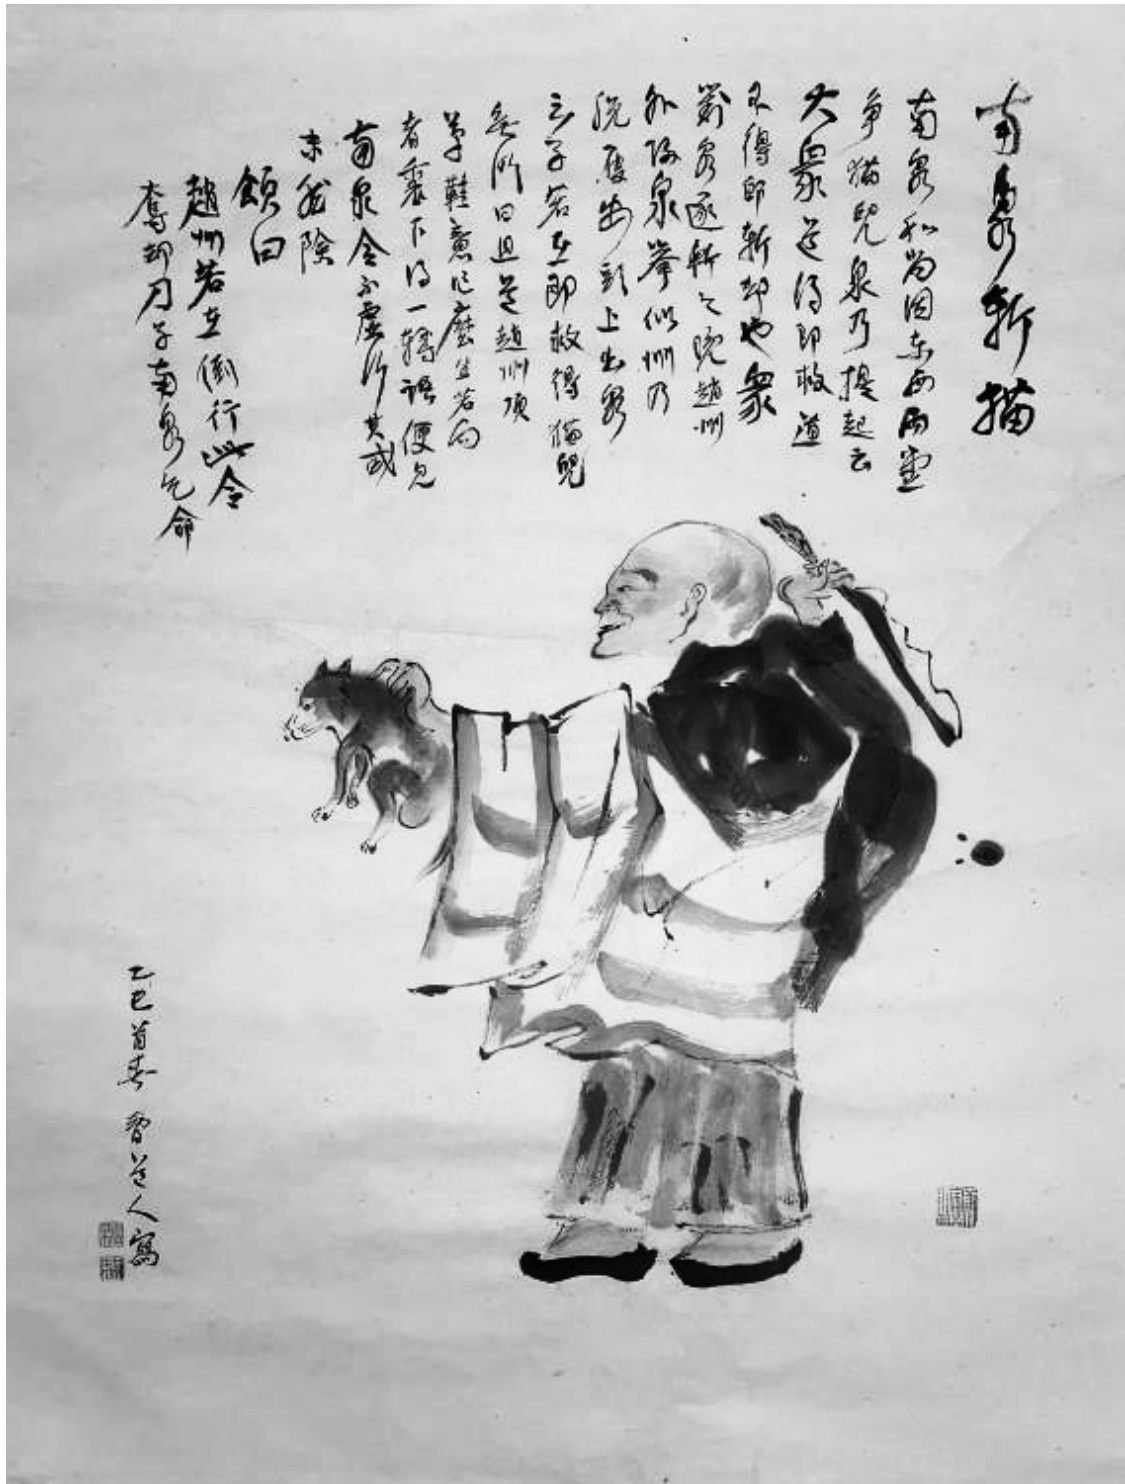 南泉斬猫
南泉和尚因東西兩堂
爭猫兒泉乃提起云
大衆道得即救道
不得即斬却也衆
對泉遂斬之晚趙州
外歸泉舉似州乃
脫履安頭上出泉
云子若在即救得猫兒
無門曰且道趙州頂
草鞋意作麼生若向
者裏下得一轉語便見
南泉令不虛行其或
未然險
頌曰
趙州若在倒行此令
奪却刀子南泉乞命
乙巳首春 道人寫